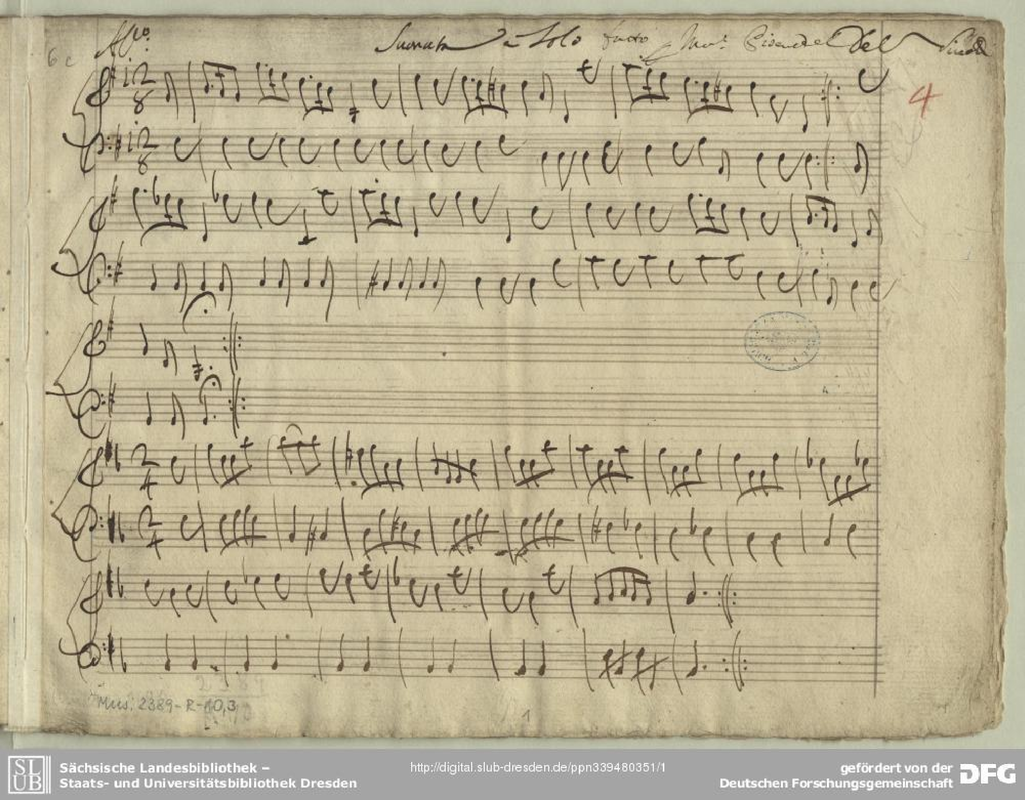 All.o Suonata à Solo facto Del Viualdi
4
12
8
12
8
2
4
2
4
Mus. 2389-R-10,3
1
SLUB
Sächsische Landesbibliothek –
Staats- und Universitätsbibliothek Dresden
http://digital.slub-dresden.de/ppn339480351/1
gefördert von der
Deutschen Forschungsgemeinschaft
DFG